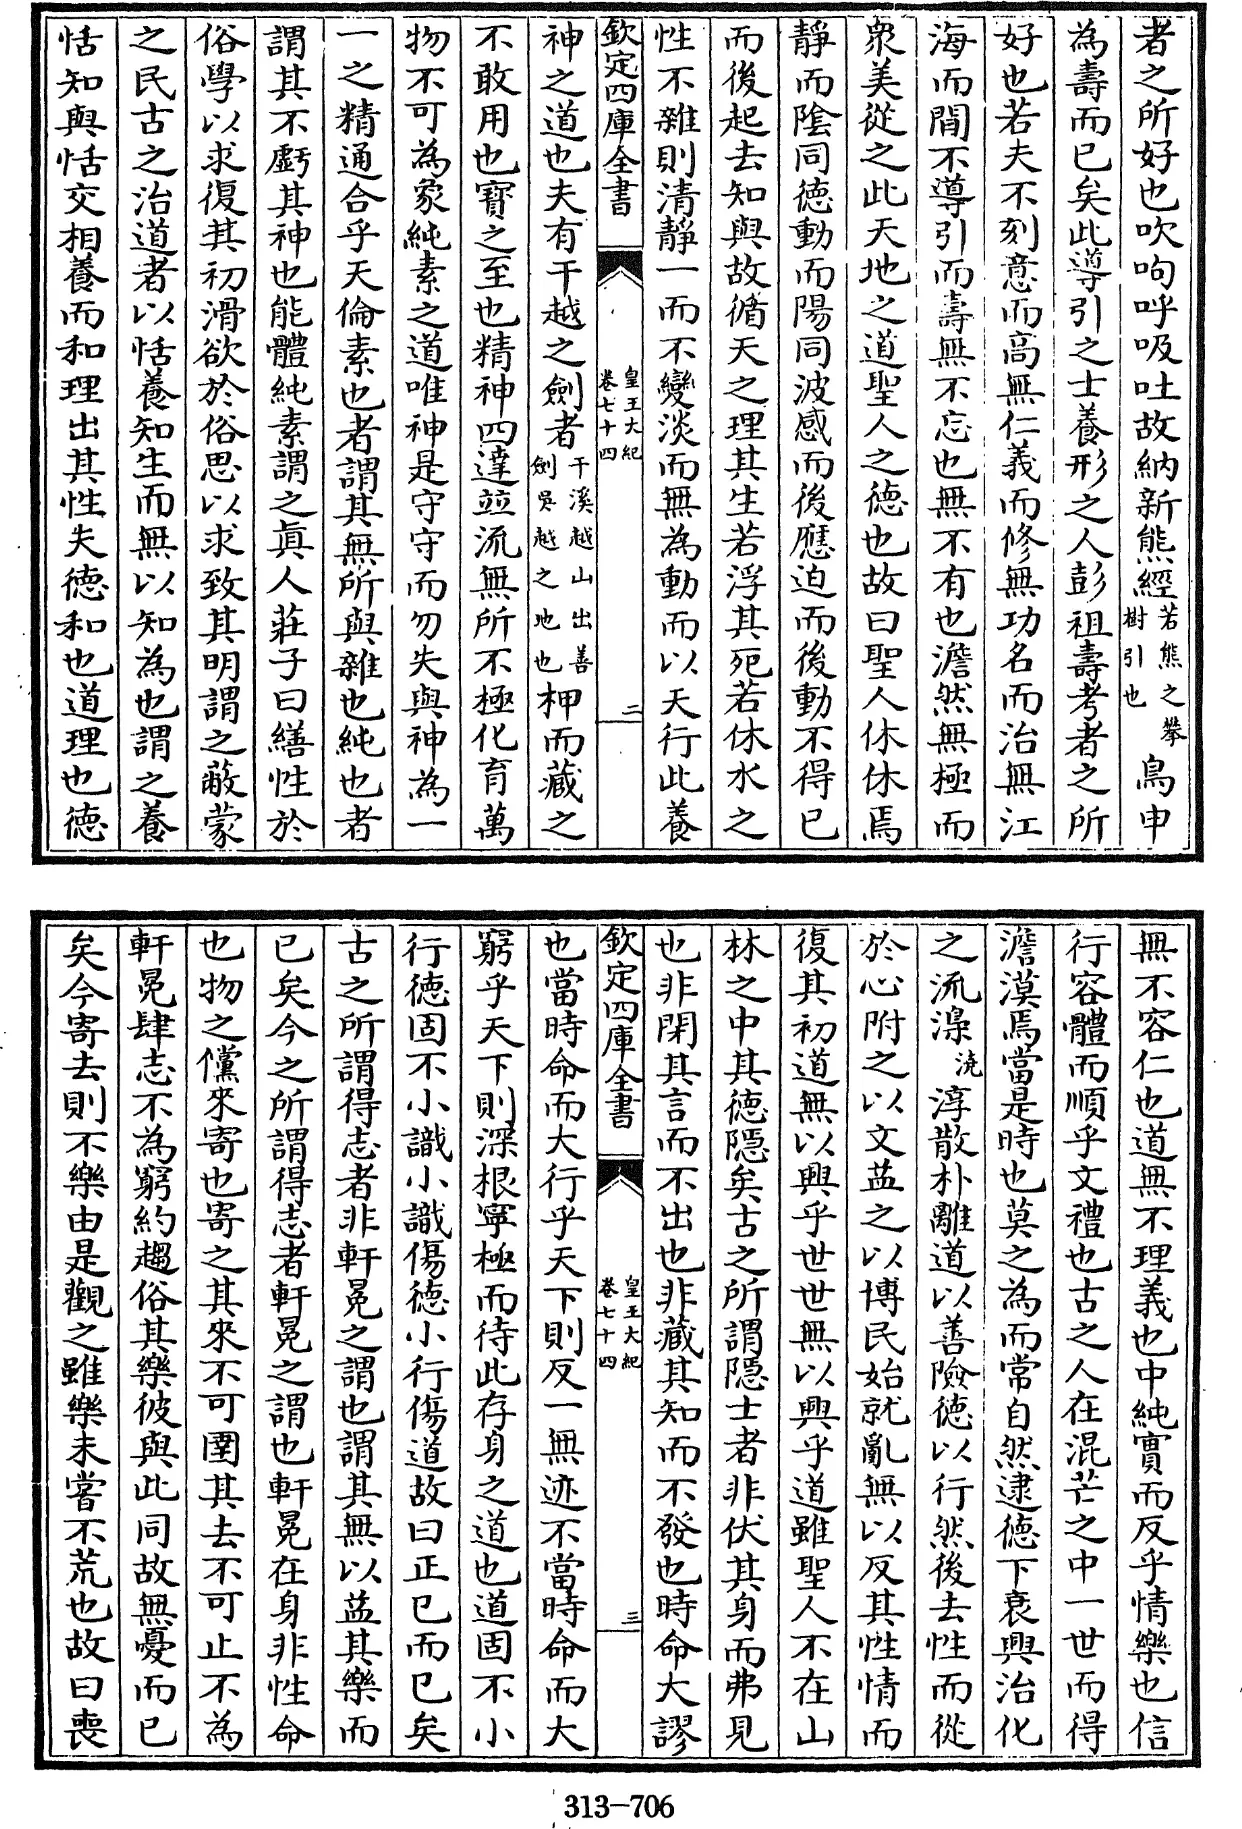 者之所好也吹呴呼吸吐故納新熊經若熊之攀樹引也鳥申
為壽而已矣此導引之士養形之人彭祖壽考者之所
好也若夫不刻意而高無仁義而修無功名而治無江
海而間不導引而壽無不忘也無不有也澹然無極而
衆美從之此天地之道聖人之德也故曰聖人休休焉
靜而陰同德動而陽同波感而後應迫而後動不得已
而後起去知與故循天之理其生若浮其死若休水之
性不雜則清靜一而不變淡而無為動而以天行此養
欽定四庫全書 皇王大紀卷七十四 二
神之道也夫有干越之劍者干溪越山出善劍吳越之地也柙而藏之
不敢用也寶之至也精神四達並流無所不極化育萬
物不可為象純素之道唯神是守守而勿失與神為一
一之精通合乎天倫素也者謂其無所與雜也純也者
謂其不虧其神也能體純素謂之真人莊子曰繕性於
俗學以求復其初滑欲於俗思以求致其明謂之蔽蒙
之民古之治道者以恬養知生而無以知為也謂之養
恬知與恬交相養而和理出其性失德和也道理也德
無不容仁也道無不理義也中純實而反乎情樂也信
行容體而順乎文禮也古之人在混芒之中一世而得
澹漠焉當是時也莫之為而常自然逮德下衰興治化
之流澆淳散朴離道以善險德以行然後去性而從
於心附之以文益之以博民始就亂無以反其性情而
復其初道無以興乎世世無以興乎道雖聖人不在山
林之中其德隱矣古之所謂隱士者非伏其身而弗見
也非閉其言而不出也非藏其知而不發也時命大謬
欽定四庫全書 皇王大紀卷七十四 三
也當時命而大行乎天下則反一無迹不當時命而大
窮乎天下則深根寧極而待此存身之道也道固不小
行德固不小識小識傷德小行傷道故曰正已而已矣
古之所謂得志者非軒冕之謂也謂其無以益其樂而
已矣今之所謂得志者軒冕之謂也軒冕在身非性命
也物之儻來寄也寄之其來不可圉其去不可止不為
軒冕肆志不為窮約趨俗其樂彼與此同故無憂而已
矣今寄去則不樂由是觀之雖樂未嘗不荒也故曰喪
313-706